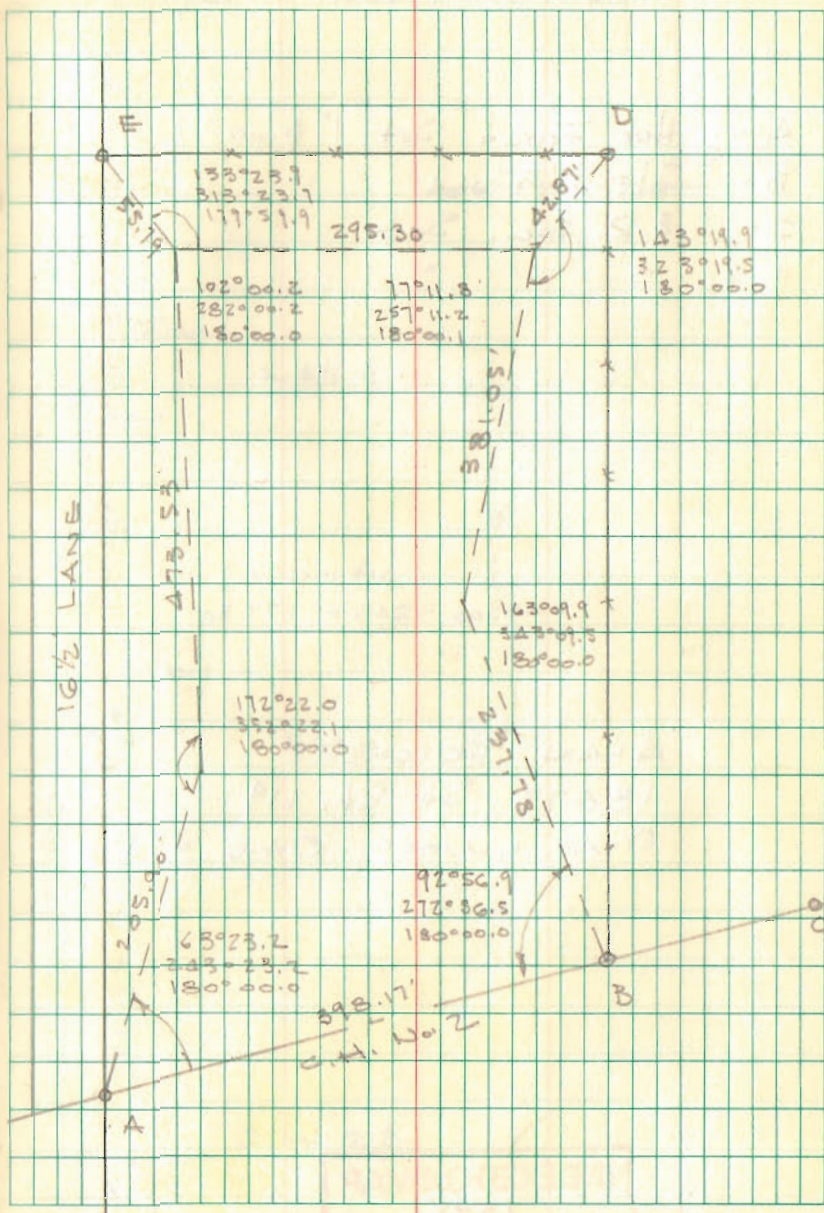 E
D
133°23.9
313°23.7
179°59.9
55.79
42.87'
295.30
143°19.9
323°19.5
180°00.0
102°00.2
282°00.2
180°00.0
77°11.3
257°11.2
180°00.1
381.05'
473.53
16½' LANE
163°09.9
343°09.5
180°00.0
172°22.0
352°22.1
180°00.0
237.78'
205.90
63°23.2
243°23.2
180°00.0
92°56.9
272°36.5
180°00.0
398.17'
C.H. No 2
A
B
C